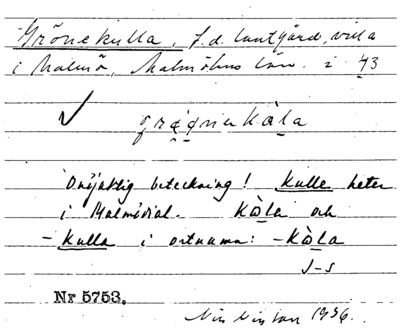 Grönekulla, f.d. lantgård, villa
i Malmö, Malmöhus län. i 43
✓ kåla
Oriktig beteckning! Kulle heter
i Malmödial. Kåla och
-kulla i ortnamn: -kåla
J-s
Nr 5753.
1936.